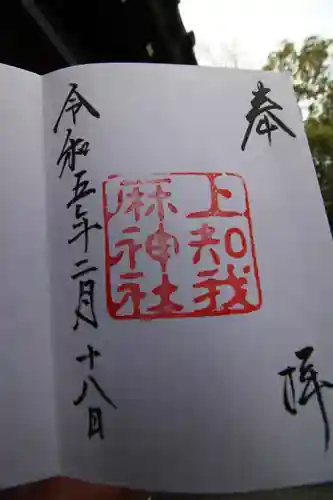 奉拝
上知我
麻神社
令和五年二月十八日